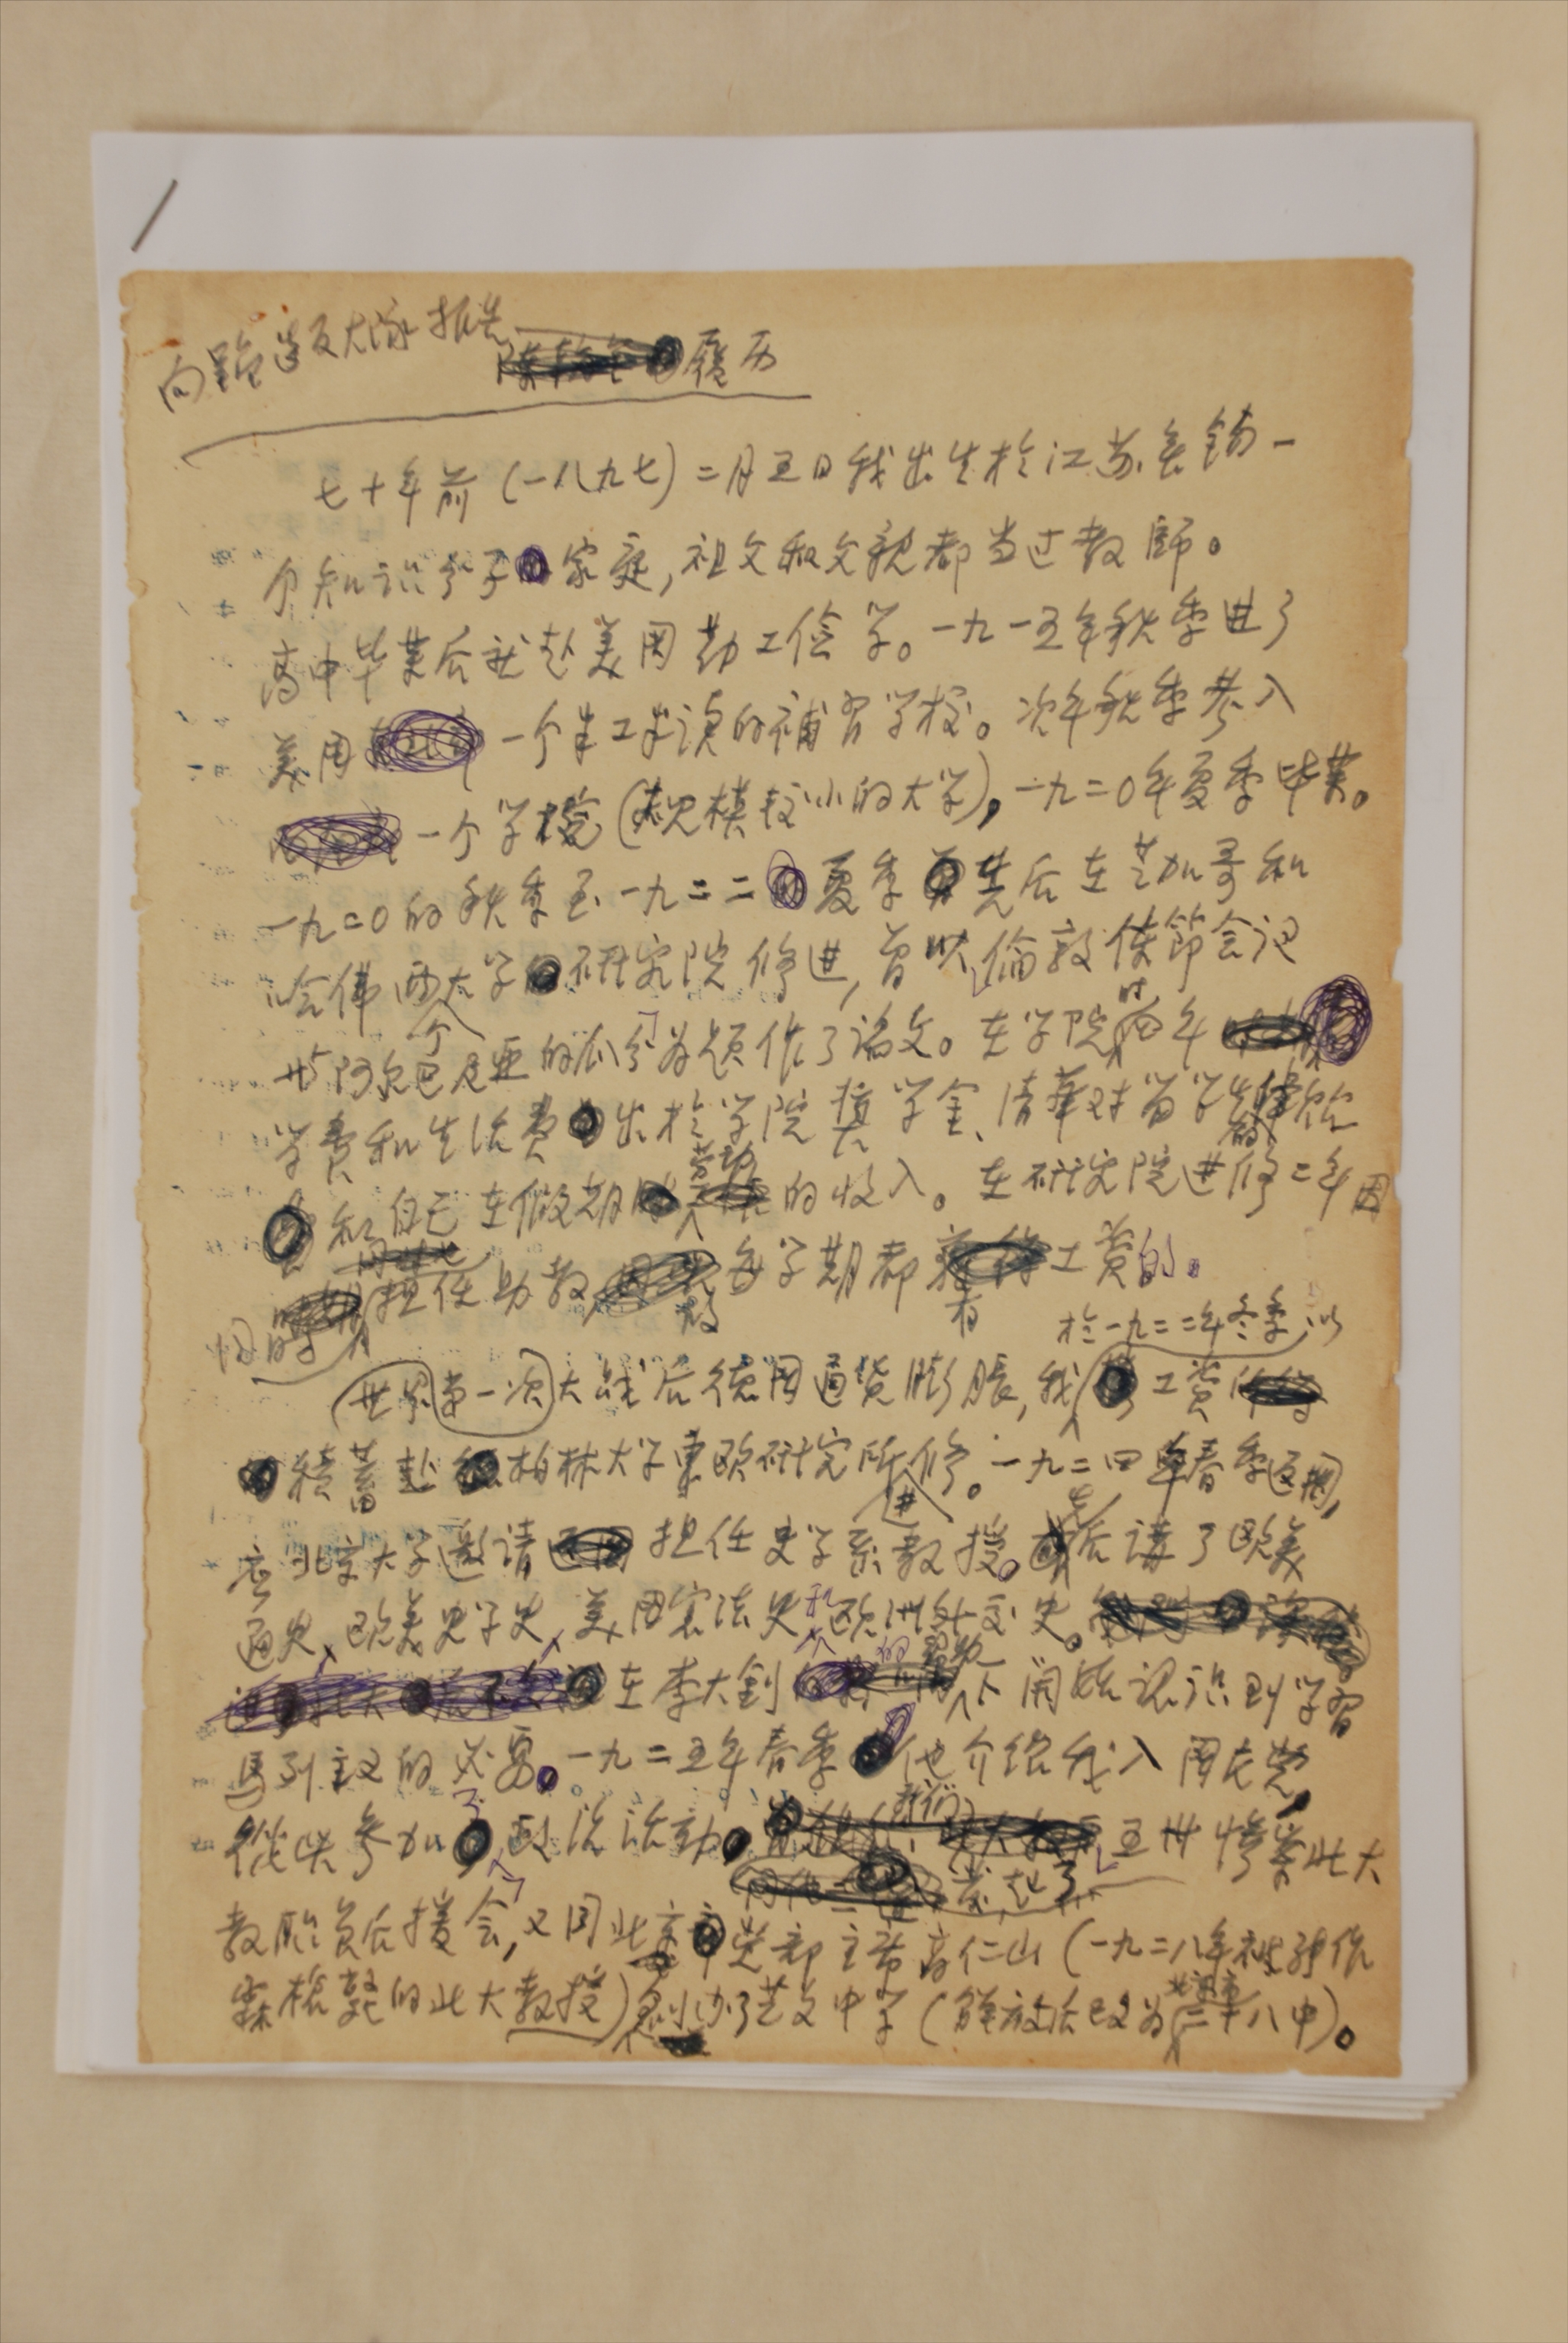 向 造反大队报告
履历
七十年前（一八九七）二月五日我出生於江苏无锡一
个知识分子家庭，祖父和父親都当过教師。
高中毕業后就赴美国勤工俭学。一九一五年秋季进了
美国一个半工半读的補習学校。次年秋季孝入
一个学院（規模较小的大学），一九二〇年夏季毕業。
一九二〇的秋季至一九二二夏季先后在芝加哥和
哈佛两个大学研究院修进，曾以倫敦使節会议
对阿尔巴尼亚的瓜分为题作了论文。在学院时四年
学費和生活费出於学院奖学金、清華对留学生的津贴
和自己在假期劳动的收入。在研究院进修二年因
同时担任助教，故每学期都有工资的。
世界第一次大战后德国通货膨脹，我於一九二二年冬季，以工资
積蓄赴柏林大学東欧研究所进修。一九二四年春季返国，
应北京大学邀请担任史学系教授。先后講了欧美
通史、欧美史学史、美国宪法史和欧洲外交史。
在李大釗的帮助下開始认识到学習
馬列主义的必要。一九二五年春季他介绍我入国民党，
從此参加了政治活动。我们发起了五卅惨案北大
教职员后援会，又同北京市党部主席高仁山（一九二八年被張作
霖槍斃的北大教授）創办了艺文中学（解放后改为北京二十八中）。